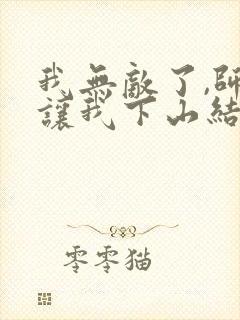 我無敵了,師
讓我下山結
零零猫